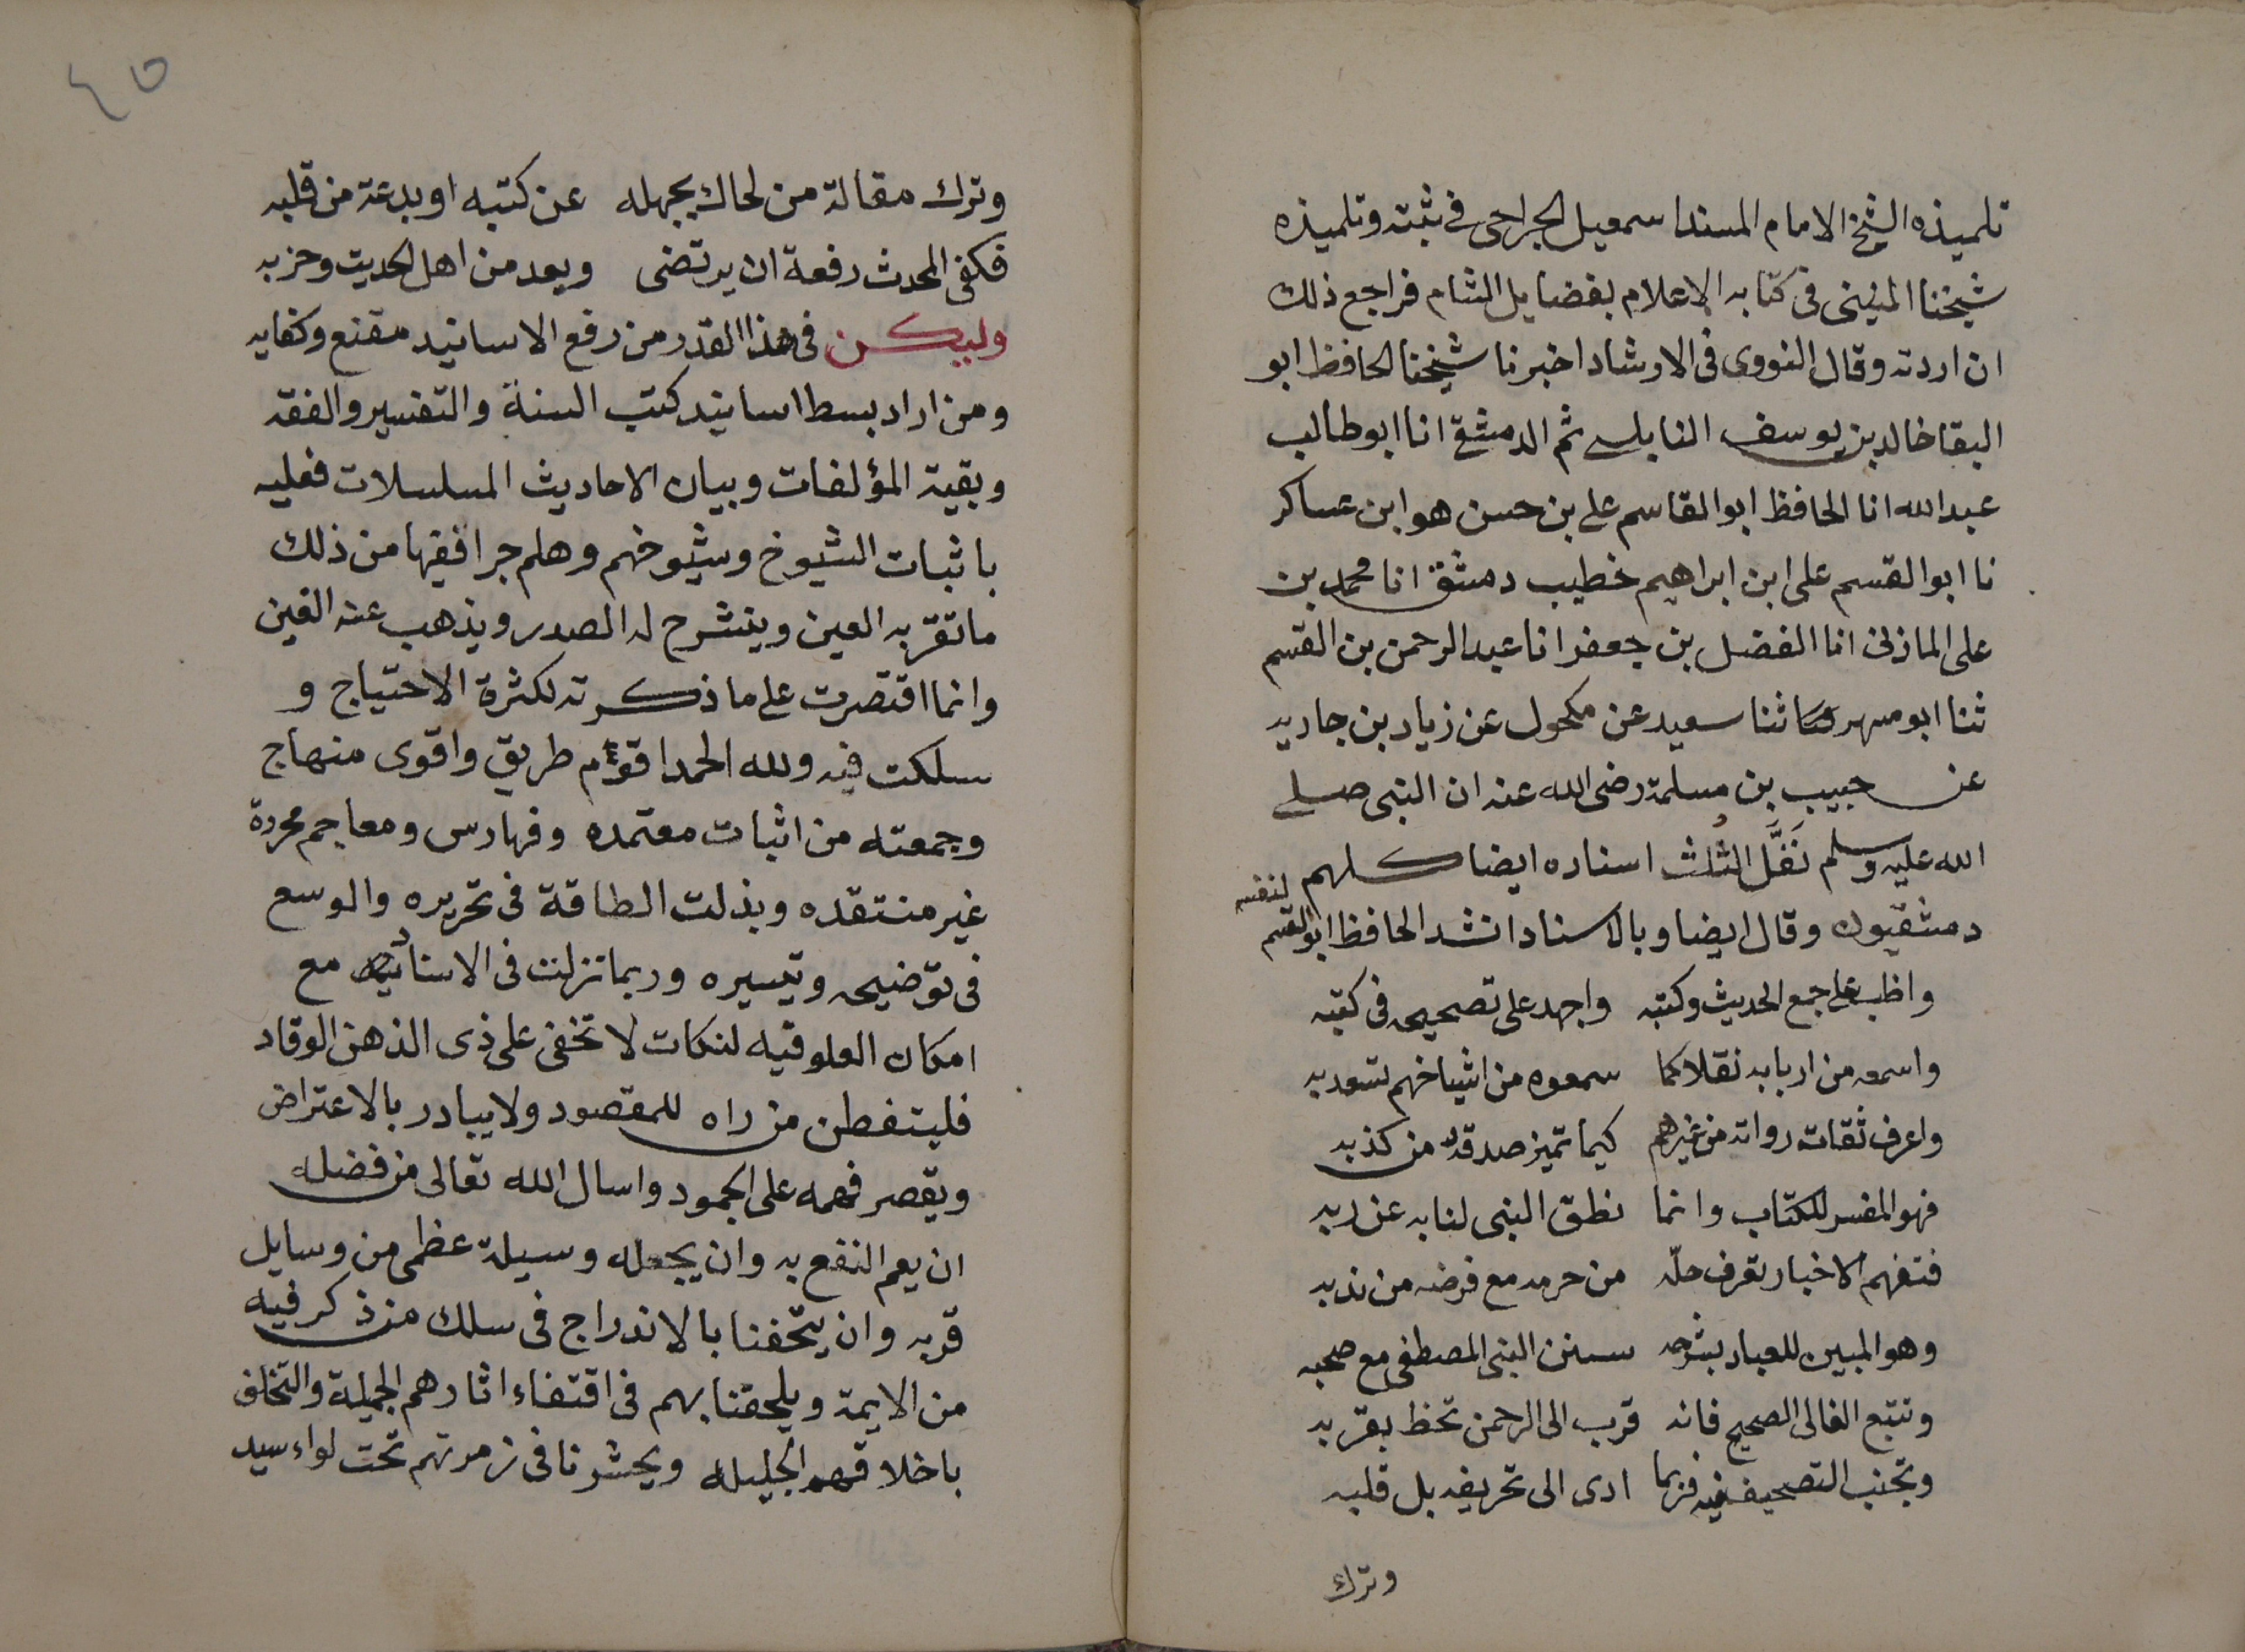 تلميذه الشيخ الامام المسند اسمعيل الجراحى فى ثبته وتلميذه
شيخنا المنينى فى كتابه الاعلام بفضايل الشام فراجع ذلك
ان اردته وقال النووى فى الارشاد اخبرنا شيخنا الحافظ ابو
البقا خالد بن يوسف النابلسى ثم الدمشقى انا ابو طالب
عبد الله انا الحافظ ابو القاسم على بن حسن هو ابن عساكر
نا ابو القسم على ابن ابراهيم خطيب دمشق انا محمد بن
على الماذنى انا الفضل بن جعفر انا عبد الرحمن بن القسم
ثنا ابو مسهر ثنا سعيد عن مكحول عن زياد بن جاريه
عن حبيب بن مسلمة رضى الله عنه ان النبى صلى
الله عليه وسلم نَفَّلَ الثُلث اسناده ايضا كلهم
دمشقيون وقال ايضا وبالاسناد انشد الحافظ ابو القسم لنفسه
واظب على جمع الحديث وكتبه واجهد على تصحيحه فى كتبه
واسمعه من اربابه نقلا كما سمعوه من اشياخهم تسعد به
واعرف ثقات رواته من غيرهم كيما تميز صدقه من كذبه
فهو المفسر للكتاب وانما نطق النبى لنا به عن ربه
فتفهم الاخبار تعرف حلّه من حرمه مع فرضه من ندبه
وهو المبين للعباد بشرحه سنن النبى المصطفى مع صحبه
وتتبع الغالى الصحيح فانه قرب الى الرحمن تحظ بقربه
وتجنب التصحيف فيه فربما ادى الى تحريفه بل قلبه
وترك
٤٥
وترك مقالة من لحاك بجهله عن كتبه او بدعة من قلبه
فكفى المحدث رفعة ان يرتضى ويعد من اهل الحديث وحزبه
وليكن فى هذا القدر من رفع الاسانيد مقنع وكفايه
ومن اراد بسط اسانيد كتب السنة والتفسير والفقه
وبقية المؤلفات وبيان الاحاديث المسلسلات فعليه
باثبات الشيوخ وشيوخهم وهلم جرا ففيها من ذلك
ما تقر به العين وينشرح له الصدر ويذهب عنه الغين
وانما اقتصرت على ما ذكرته لكثرة الاحتياج و
سلكت فيه ولله الحمد اقوم طريق واقوى منهاج
وجمعته من اثبات معتمده وفهارس ومعاجم محررة
غير منتقده وبذلت الطاقة فى تحريره والوسع
فى توضيحه وتيسيره وربما نزلت فى الاسناد مع
امكان العلو فيه لنكات لا تخفى على ذى الذهن الوقاد
فليتفطن من راه للمقصود ولا يبادر بالاعتراض
ويقصر فهمه على الجمود واسال الله تعالى من فضله
ان يعم النفع به وان يجعله وسيلة عظمى من وسايل
قربه وان يتحفنا بالاندراج فى سلك من ذكر فيه
من الايمة ويلحقنا بهم فى اقتفاء اثارهم الجميلة والتخلق
باخلاقهم الجليله ويحشرنا فى زمرتهم تحت لواء سيد